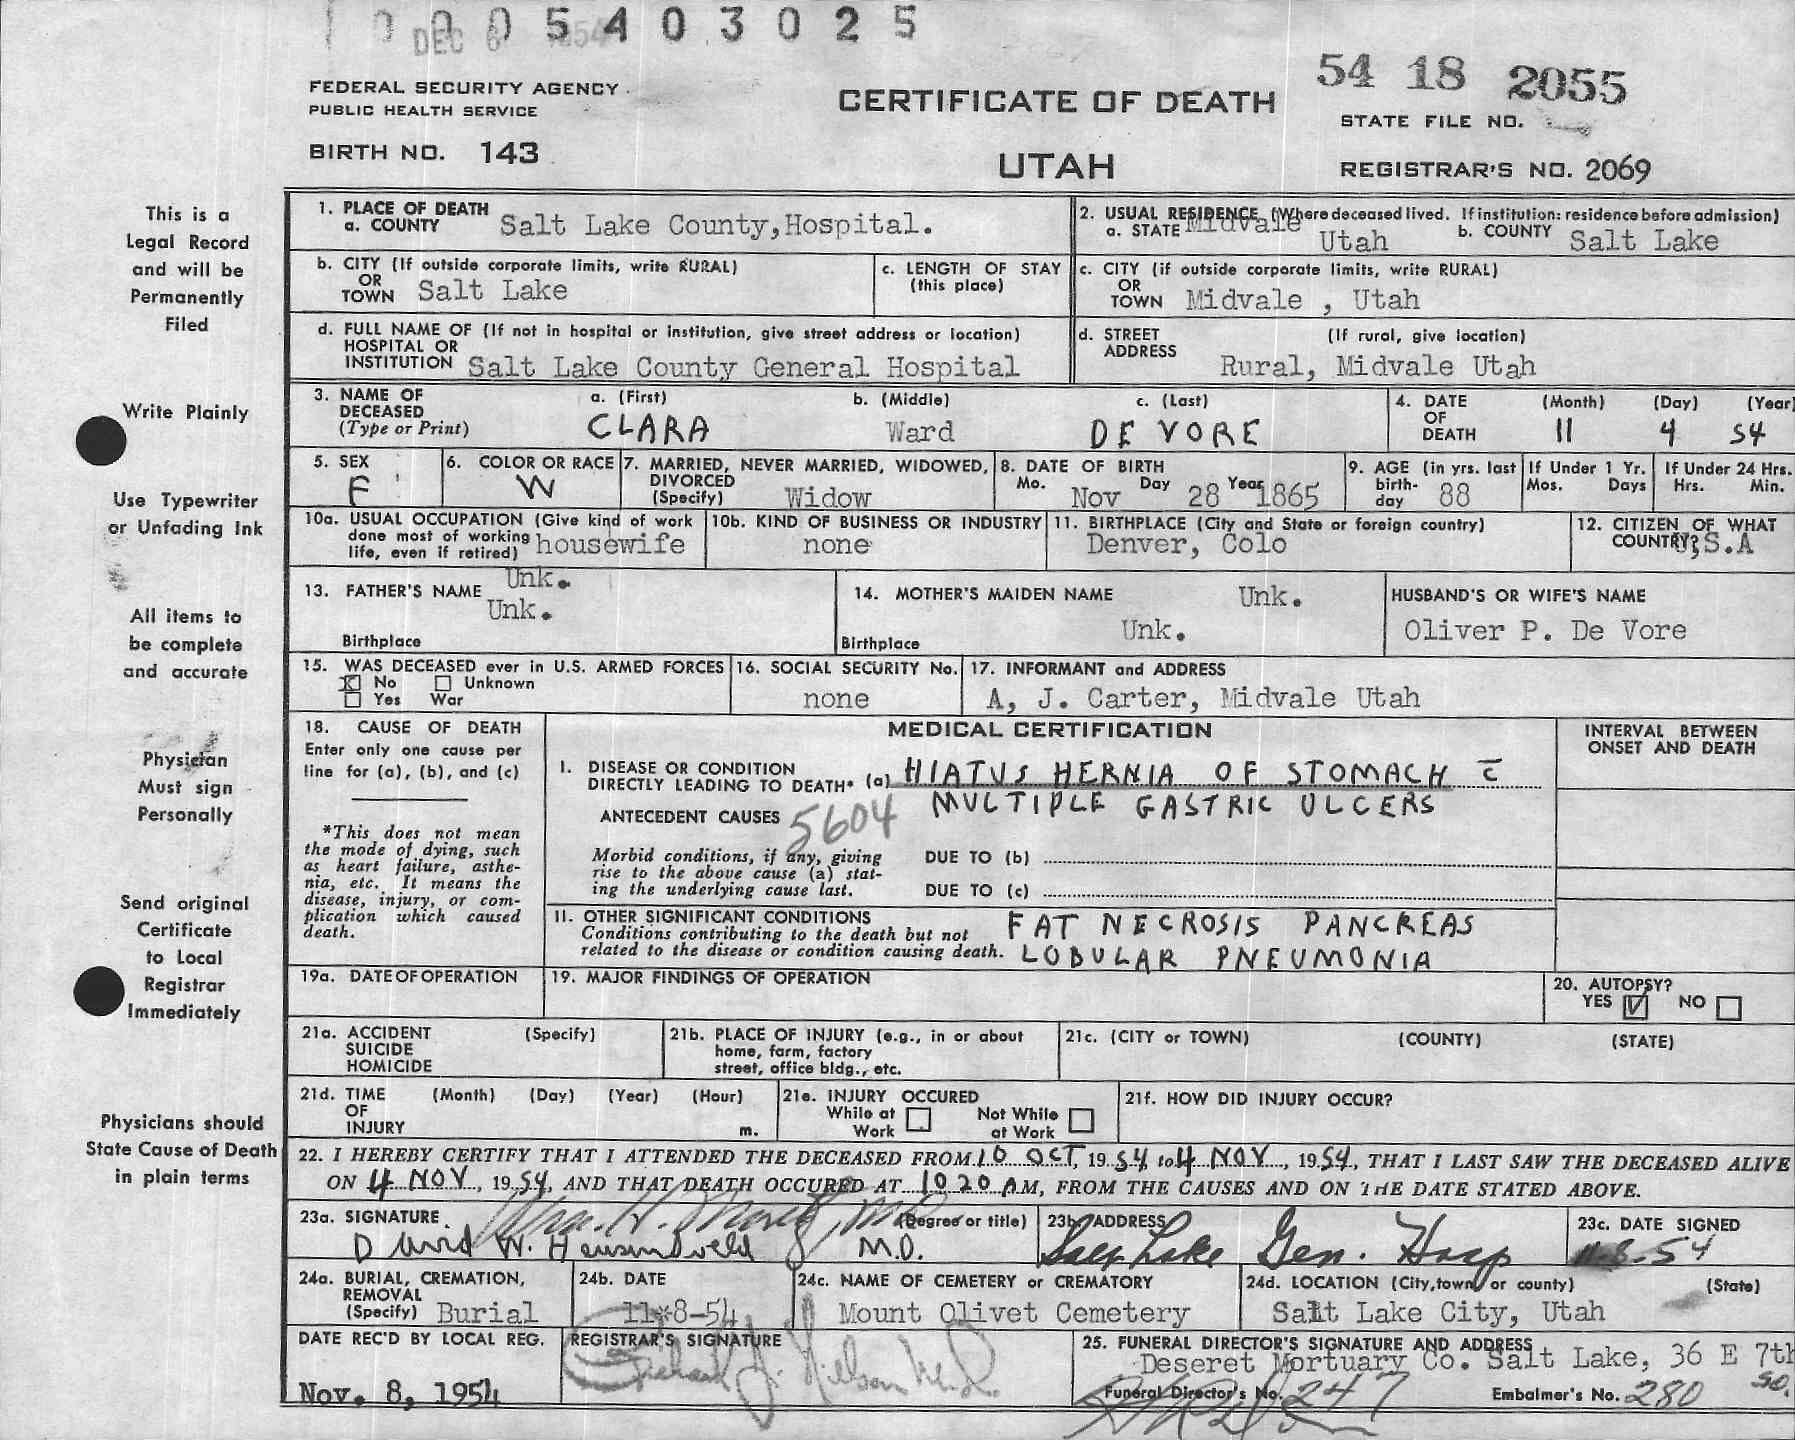 0005403025
DEC 6 1954
54 18 2055
FEDERAL SECURITY AGENCY
PUBLIC HEALTH SERVICE
CERTIFICATE OF DEATH
STATE FILE NO.
BIRTH NO. 143
UTAH
REGISTRAR'S NO. 2069
This is a
Legal Record
and will be
Permanently
Filed
Write Plainly
Use Typewriter
or Unfading Ink
All items to
be complete
and accurate
Physician
Must sign
Personally
Send original
Certificate
to Local
Registrar
Immediately
Physicians should
State Cause of Death
in plain terms
1. PLACE OF DEATH
a. COUNTY Salt Lake County, Hospital.
2. USUAL RESIDENCE (Where deceased lived. If institution: residence before admission)
a. STATE Midvale Utah b. COUNTY Salt Lake
b. CITY (If outside corporate limits, write RURAL)
OR
TOWN Salt Lake
c. LENGTH OF STAY
(this place)
c. CITY (if outside corporate limits, write RURAL)
OR
TOWN Midvale , Utah
d. FULL NAME OF (If not in hospital or institution, give street address or location)
HOSPITAL OR
INSTITUTION Salt Lake County General Hospital
d. STREET (If rural, give location)
ADDRESS Rural, Midvale Utah
3. NAME OF
DECEASED
(Type or Print)
a. (First) b. (Middle) c. (Last)
CLARA Ward DE VORE
4. DATE (Month) (Day) (Year)
OF
DEATH 11 4 54
5. SEX
F
6. COLOR OR RACE
W
7. MARRIED, NEVER MARRIED, WIDOWED,
DIVORCED
(Specify) Widow
8. DATE OF BIRTH
Mo. Nov Day 28 Year 1865
9. AGE (in yrs. last
birth-
day 88
If Under 1 Yr.
Mos. Days
If Under 24 Hrs.
Hrs. Min.
10a. USUAL OCCUPATION (Give kind of work
done most of working
life, even if retired) housewife
10b. KIND OF BUSINESS OR INDUSTRY
none
11. BIRTHPLACE (City and State or foreign country)
Denver, Colo
12. CITIZEN OF WHAT
COUNTRY? U,S.A
13. FATHER'S NAME Unk.
Unk.
Birthplace
14. MOTHER'S MAIDEN NAME Unk.
Unk.
Birthplace
HUSBAND'S OR WIFE'S NAME
Oliver P. De Vore
15. WAS DECEASED ever in U.S. ARMED FORCES
X No Unknown
Yes War
16. SOCIAL SECURITY No.
none
17. INFORMANT and ADDRESS
A, J. Carter, Midvale Utah
18. CAUSE OF DEATH
Enter only one cause per
line for (a), (b), and (c)
*This does not mean
the mode of dying, such
as heart failure, asthe-
nia, etc. It means the
disease, injury, or com-
plication which caused
death.
MEDICAL CERTIFICATION
INTERVAL BETWEEN
ONSET AND DEATH
I. DISEASE OR CONDITION
DIRECTLY LEADING TO DEATH* (a) HIATUS HERNIA OF STOMACH c̅
MULTIPLE GASTRIC ULCERS
ANTECEDENT CAUSES 5604
Morbid conditions, if any, giving
rise to the above cause (a) stat-
ing the underlying cause last.
DUE TO (b)
DUE TO (c)
II. OTHER SIGNIFICANT CONDITIONS
Conditions contributing to the death but not
related to the disease or condition causing death.
FAT NECROSIS PANCREAS
LOBULAR PNEUMONIA
19a. DATE OF OPERATION
19. MAJOR FINDINGS OF OPERATION
20. AUTOPSY?
YES ✓ NO
21a. ACCIDENT (Specify)
SUICIDE
HOMICIDE
21b. PLACE OF INJURY (e.g., in or about
home, farm, factory
street, office bldg., etc.
21c. (CITY or TOWN) (COUNTY) (STATE)
21d. TIME (Month) (Day) (Year) (Hour)
OF
INJURY m.
21e. INJURY OCCURED
While at Not While
Work at Work
21f. HOW DID INJURY OCCUR?
22. I HEREBY CERTIFY THAT I ATTENDED THE DECEASED FROM 10 OCT, 1954, to 4 NOV, 1954, THAT I LAST SAW THE DECEASED ALIVE
ON 4 NOV, 1954, AND THAT DEATH OCCURED AT 10 20 AM, FROM THE CAUSES AND ON THE DATE STATED ABOVE.
23a. SIGNATURE (Degree or title)
David W. M.D.
23b. ADDRESS
Salt Lake Gen. Hosp
23c. DATE SIGNED
11-8-54
24a. BURIAL, CREMATION,
REMOVAL
(Specify) Burial
24b. DATE
11-8-54
24c. NAME OF CEMETERY or CREMATORY
Mount Olivet Cemetery
24d. LOCATION (City, town, or county) (State)
Salt Lake City, Utah
DATE REC'D BY LOCAL REG.
Nov. 8, 1954
REGISTRAR'S SIGNATURE
25. FUNERAL DIRECTOR'S SIGNATURE AND ADDRESS
Deseret Mortuary Co. Salt Lake, 36 E 7th
so.
Funeral Director's No. 247 Embalmer's No. 280